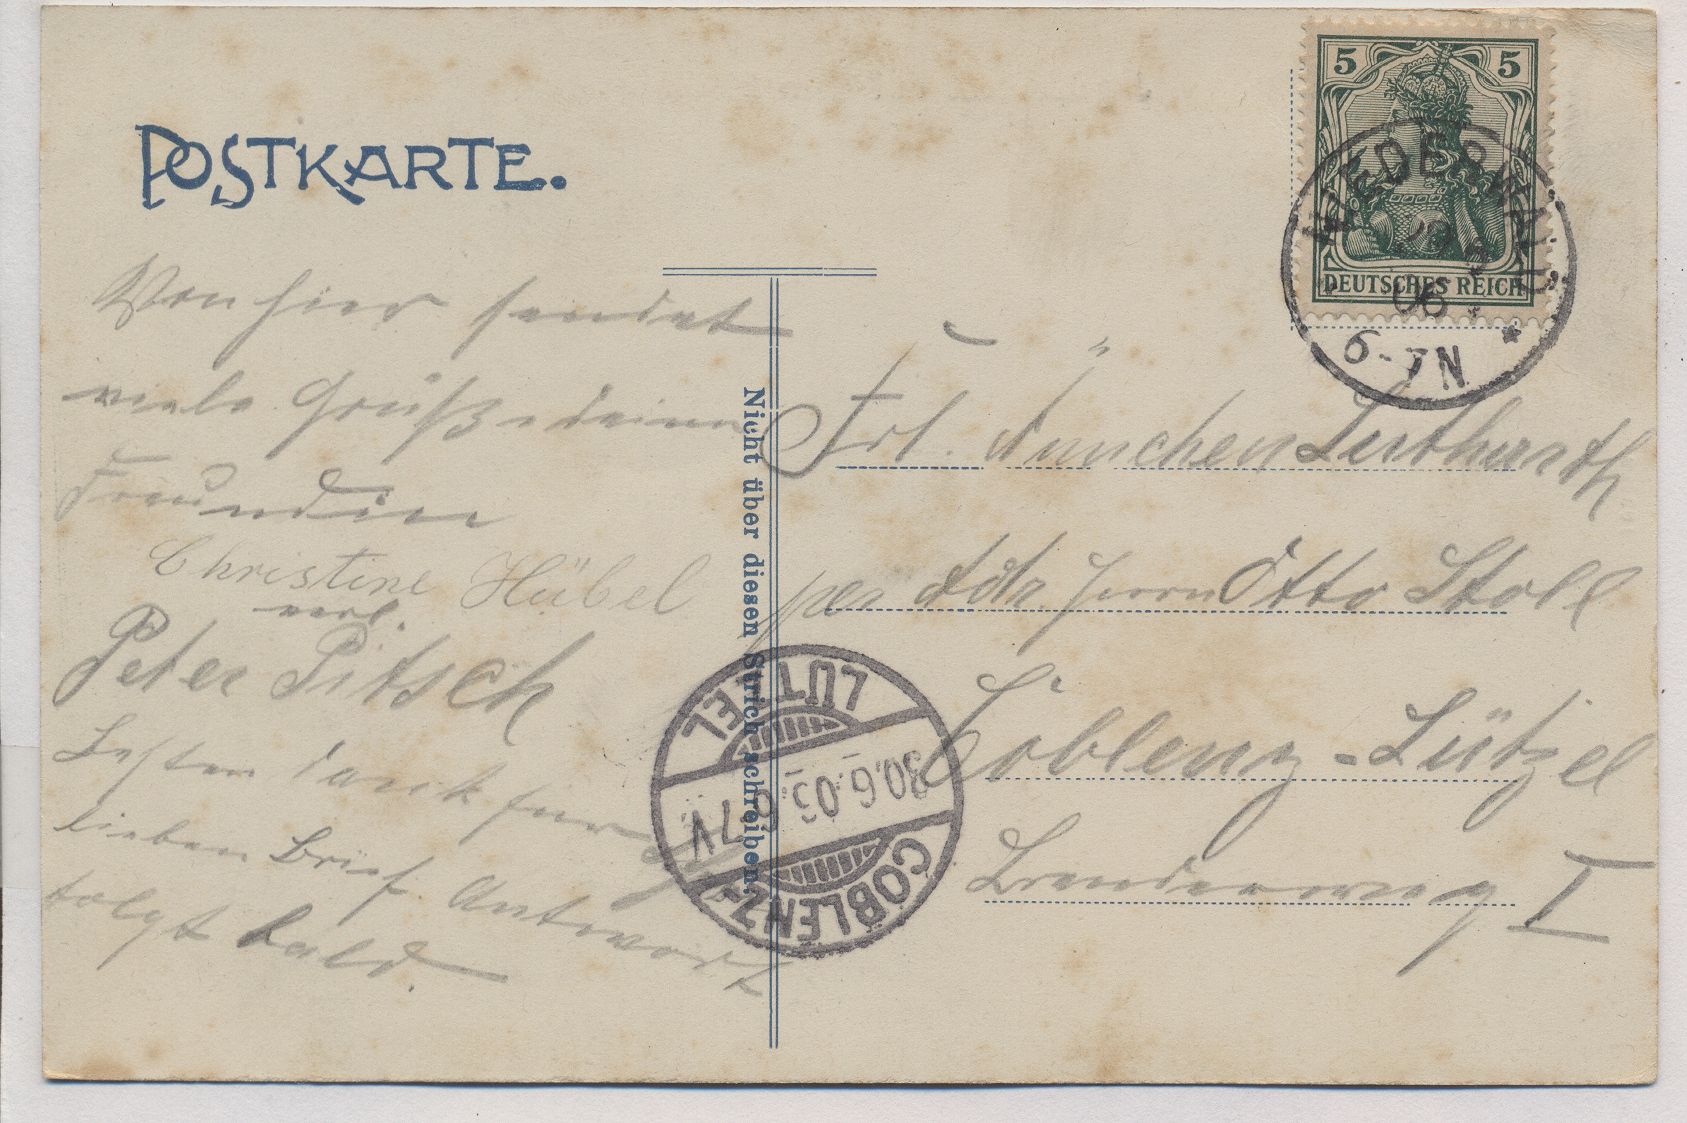 POSTKARTE.
Von hier sendet
viele Grüße deine
Freundin
Christine Hübel
Peter Pitsch
Besten Dank für
lieben Brief. Antwort
folgt bald.
Nicht über diesen Strich schreiben.
5 5
DEUTSCHES REICH
06
6-7N
Frl. Ännchen
per Adr. Herrn Otto Stoll
Coblenz-Lützel
I
COBLENZ-
30.6.05. 6-7V
LÜTZEL